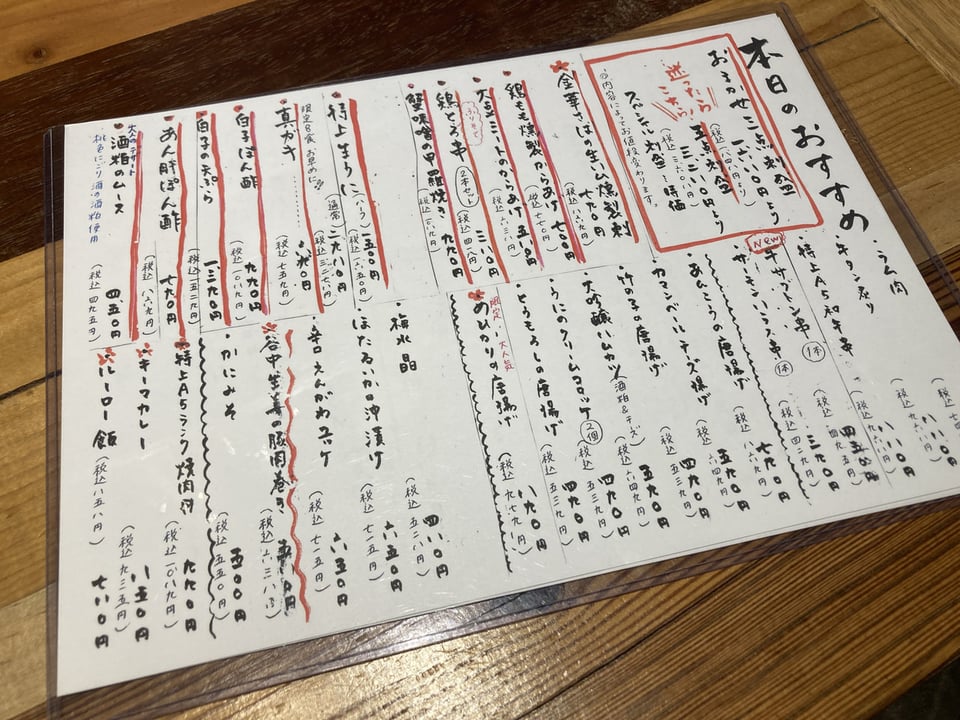 本日のおすすめ
おまかせ三点刺盛
迷ったらこちら
五点刺盛
スペシャル刺盛 時価
◎内容によってお値段変わります。
金華さばの生ハム燻製刺
七七〇円
鶏もも燻製からあげ 七〇〇円
(税込 七七〇円)
大豆ミートのからあげ 五八〇円
(税込 六三八円)
鶏とろ串 2本セット 三八〇円
(税込 四一八円)
蟹味噌の甲羅焼き 九九〇円
(税込 一〇八九円)
特上生うに(ハーフ) 一五〇〇円
(税込 一六五〇円)
(通常) 二九八〇円
(税込 三二七八円)
限定8食 お早めに
真カキ
(税込 七五九円)
白子ぽん酢 九九〇円
(税込 一〇八九円)
白子の天ぷら
あん肝ぽん酢 七九〇円
(税込 八六九円)
大人のデザート
酒粕のムース 四五〇円
(税込 四九五円)
桃色にごり酒の酒粕使用
・ラム肉
・牛タン炙り
・特上A5和牛串 1本
New
・牛サガトン串 1本
・サーモンハラス串
七九〇円
・あんこうの唐揚げ
・カマンベールチーズ揚げ 四九〇円
(税込 五三九円)
・竹の子の唐揚げ 五九〇円
(税込 六四九円)
・大吟醸ハムカツ(酒粕&チーズ) 四九〇円
(税込 五三九円)
・うにのクリームコロッケ 2個 四九〇円
(税込 五三九円)
・とうもろこしの唐揚げ
限定・大人気
めひかりの唐揚げ
・梅水晶
四八〇円
・ほたるいかの沖漬け 六五〇円
(税込 七一五円)
・辛口えんがわユッケ 六五〇円
(税込 七一五円)
谷中生姜の豚肉巻き
(税込 六三八円)
・かにみそ 五〇〇円
(税込 五五〇円)
特上A5ランク焼肉丼 九九〇円
(税込 一〇八九円)
キーマカレー 八五〇円
(税込 九三五円)
ルーロー飯 七八〇円
(税込 八五八円)